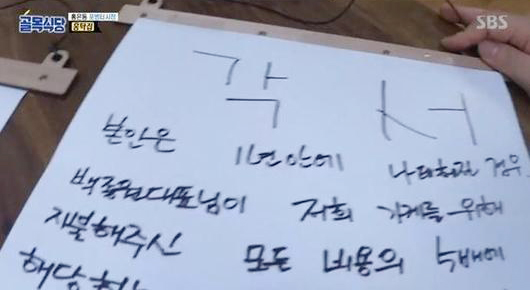 골목식당
홍은동 포방터시장
홍탁집
SBS
각 서
본인은 1년 안에 나태해질 경우
백종원대표님이 저희 가게를 위해
지불해주신 모든 비용의 5배에
해당